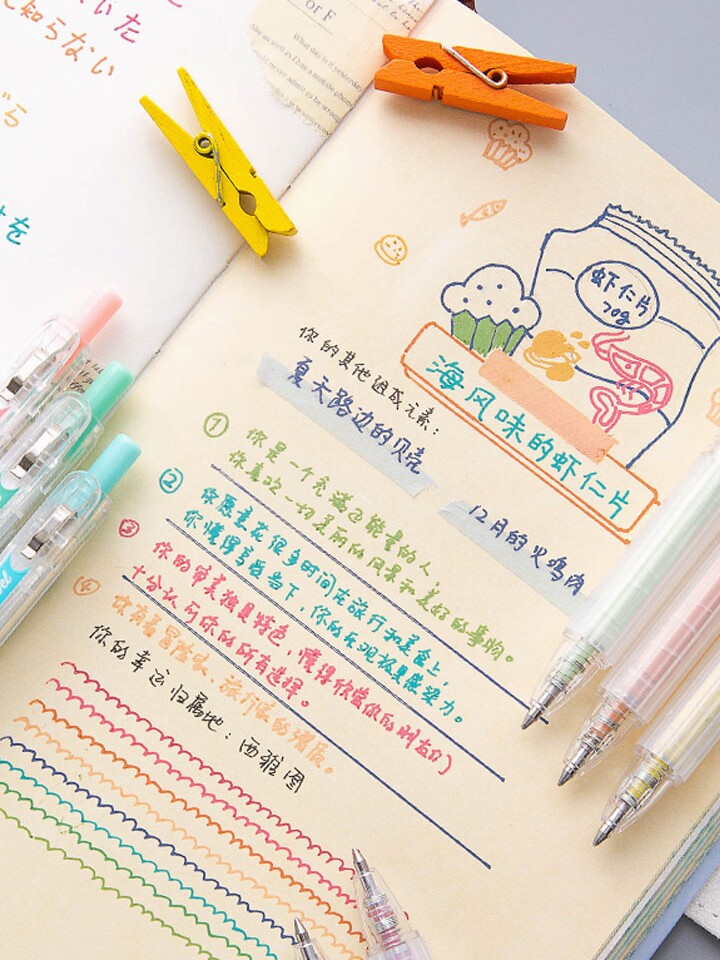 いた
知らない
ら
を
or F
What day is it yesterday
虾仁片
70g
海风味的虾仁片
你的其他组成元素：
夏天路边的贝壳
12月的火鸡肉
① 你是一个充满正能量的人，
你喜欢一切美丽的风景和美好的事物。
② 你愿意花很多时间在旅行和美食上，
你懂得享受当下，你的乐观极具感染力。
③ 你的审美独具特色，懂得欣赏你的
十分认可你的所有选择。
④ 你有着冒险家、旅行家的潜质。
你的幸运归属地：西雅图